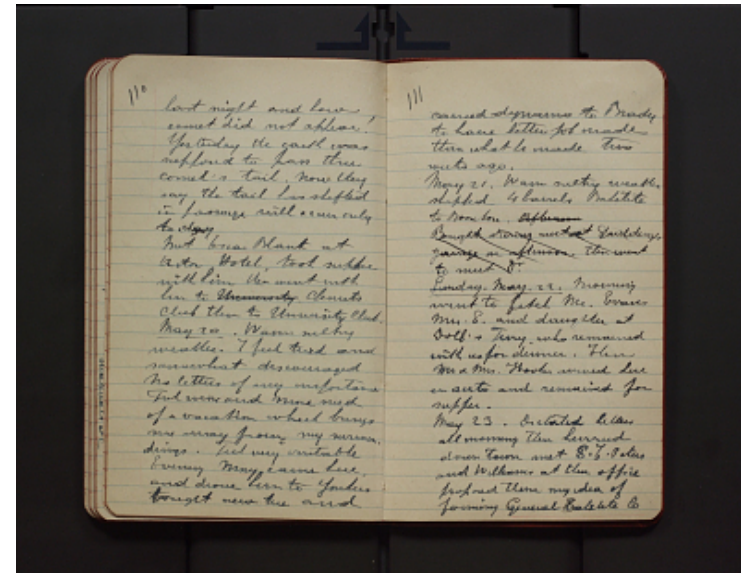 110
last night and how
comet did not appear!
Yesterday the earth was
supposed to pass thru
comet's tail. Now they
say the tail has shifted
& passage will occur only
to day
Met Esca Blank at
Astor Hotel, took supper
with him then went with
him to University Chemists
Club then to University Club.
May 20. Warm sultry
weather. I feel tired and
somewhat discouraged
No letters of any importance
Feel more and more need
of a vacation which brings
me away from my surroun-
dings. Feel very irritable
Evening May came here
and drove him to Yonkers
bought new tire and
111
carried dynamo to Brady
to have better job made
than what he made two
weeks ago.
May 21. Warm sultry weather
shipped 4 barrels Bakelite
to Boonton. Afternoon
Bought at Spaulding's
garage in afternoon then went
to meet Dr.
Sunday. May. 22. Morning
went to fetch Mr. Evans
Mrs. E. and daughter at
Dobb's Ferry who remained
with us for dinner. Then
Mr & Mrs. Hooker arrived here
in auto and remained for
supper.
May 23. Dictated letters
all morning then hurried
down town met
and Williams at the office
proposed them my idea of
forming General Bakelite Co